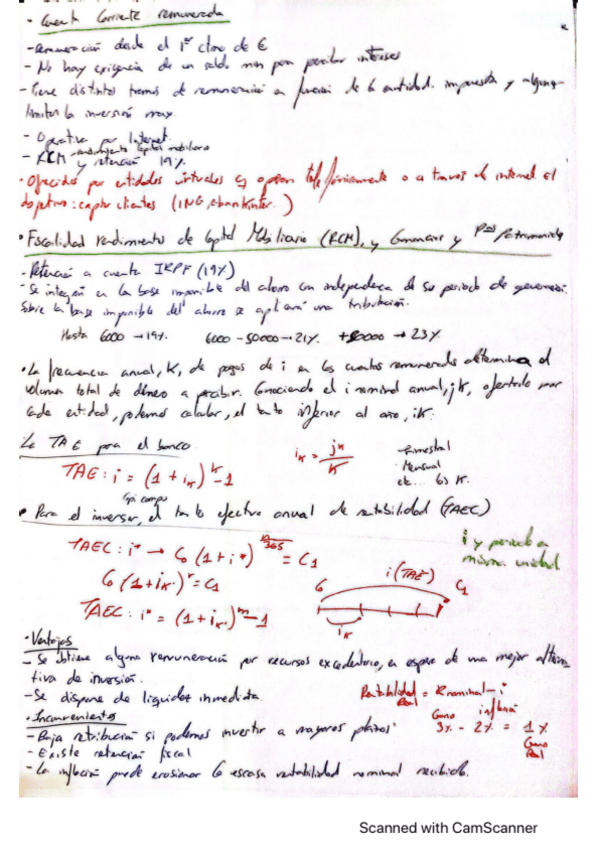 · Cuenta Corriente remunerada
- Remuneración desde el 1er euro de €
- No hay exigencia de un saldo min para percibir intereses
- Tiene distintos tramos de remuneración en función de la cantidad. impuesta y algunos
limitan la inversión max.
- Operativa por Internet.
- RCM - rendimiento capital mobiliario y retención 19%
· Ofrecidos por entidades virtuales y operan telefónicamente o a traves de internet. El
objetivo: captar clientes (ING, ebankinter.)
· Fiscalidad rendimientos de Capital Mobiliario (RCM), y Ganancias y Pdas Patrimoniales
- Retención a cuenta IRPF (19%)
- Se integran en la base imponible del ahorro con independencia de su periodo de generación.
Sobre la base imponible del ahorro se aplicará una tributación.
Hasta 6000 → 19%. 6000 - 50000 → 21% +50000 → 23%
· La frecuencia anual, K, de pagos de i en las cuentas remuneradas determina el
volumen total de dinero a percibir. Conociendo el i nominal anual, jK, ofertado por
cada entidad, podemos calcular, el tanto inferior al año, iK.
La TAE para el banco.
TAE: i = (1 + iK)^K - 1
iK = jK / K
- Trimestral
· Mensual
etc...
· Para el inversor, el tanto efectivo anual de rentabilidad (TAEC)
TAEC: i* → C0 (1 + i*)^(n/365) = C1
i y periodo en
misma unidad
C0 (1 + iK)^r = C1
C0 i (TAE) C1
iK
TAEC: i* = (1 + iK)^m - 1
· Ventajas
- Se obtiene alguna remuneración por recursos excedentarios, a espera de una mejor alterna-
tiva de inversión.
- Se dispone de liquidez inmediata.
Rentabilidad Real = R nominal - i inflación
· Inconvenientes
Gano 3% - 2% = 1% Gano Real
- Baja retribución si podemos invertir a mayores plazos
- Existe retención fiscal
- La inflación puede erosionar la escasa rentabilidad nominal recibida.
Scanned with CamScanner